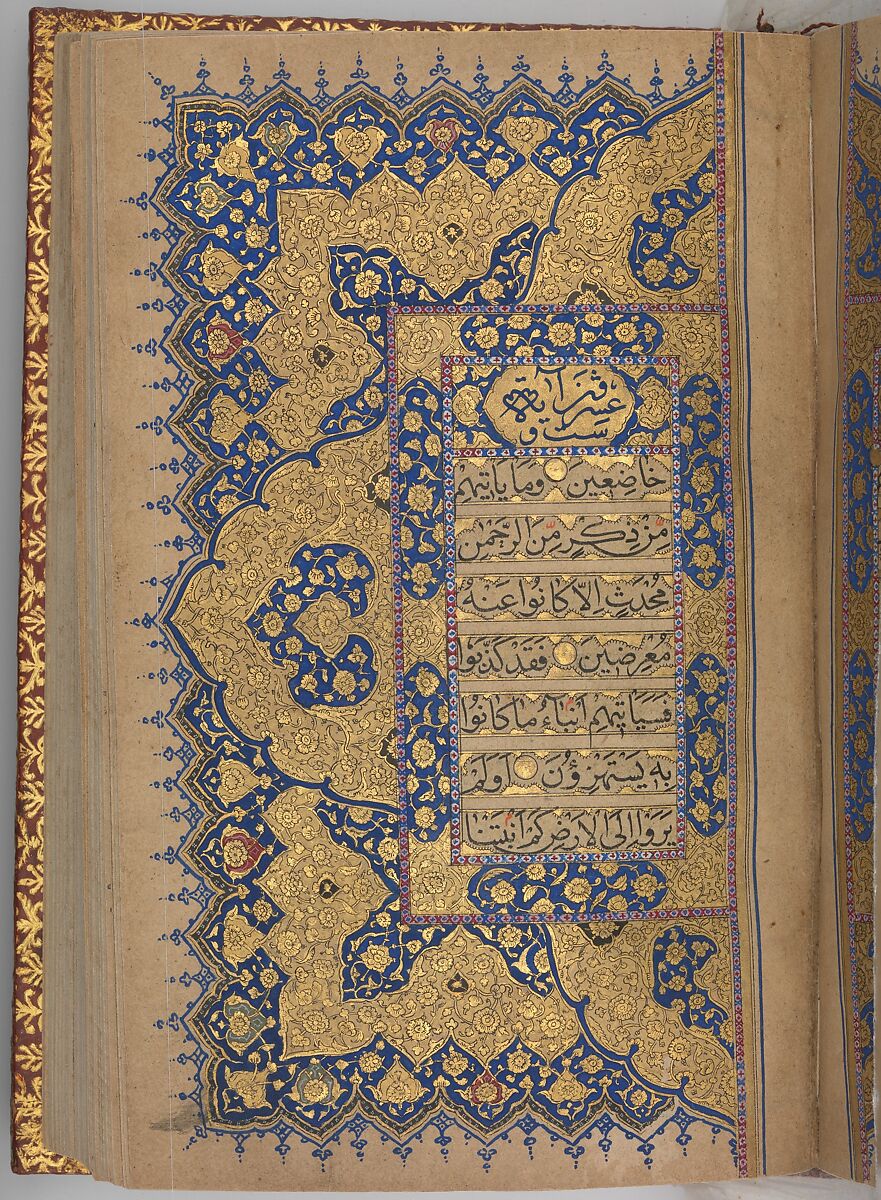 ست وعشرون آية
خَاضِعِينَ وَمَا يَاتِيهِمْ
مِنْ ذِكْرٍ مِنَ الرَّحْمٰنِ
مُحْدَثٍ اِلَّا كَانُوا عَنْهُ
مُعْرِضِينَ فَقَدْ كَذَّبُوا
فَسَيَاتِيهِمْ اَنْبَاءُ مَا كَانُوا
بِهِ يَسْتَهْزِؤُنَ اَوَلَمْ
يَرَوْا اِلَى الْاَرْضِ كَمْ اَنْبَتْنَا